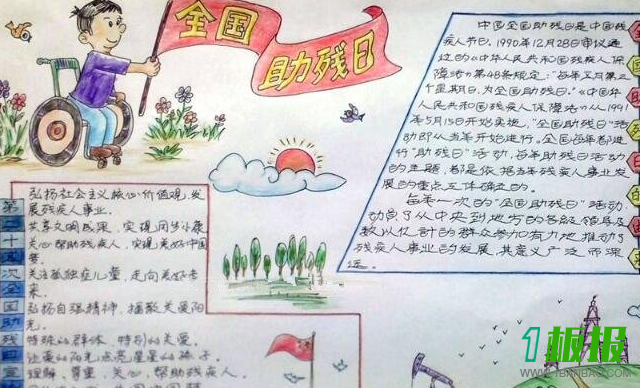 全国
助残日
中国全国助残日是中国残
疾人节日。1990年12月28日审议通
过的《中华人民共和国残疾人保
障法》第48条规定:"每年五月第三
个星期日,为全国助残日。"《中华
人民共和国残疾人保障法》从1991
年5月15日开始实施,"全国助残日"活
动即从当年开始进行。全国每年都进
行"助残日"活动,每年助残日活动
的主题,都是依据当年残疾人事业发
展的重点工作确立的。
每年一次的"全国助残日"活动,
动员了从中央到地方的各级领导及
数以亿计的群众参加有力地推动了
残疾人事业的发展,其意义广泛而深
远。
弘扬社会主义核心价值观,发
展残疾人事业。
共享文明成果,实现同步小康
关心帮助残疾人,实现美好中国
梦。
关注孤独症儿童,走向美好未
来。
弘扬自强精神,播散关爱阳
光。
特殊的群体,特别的关爱。
让爱的阳光点亮星星的孩子。
理解、尊重、关心、帮助残疾人。
第
十
次全国助残日宣
1板报
WWW.1BANBAO.COM